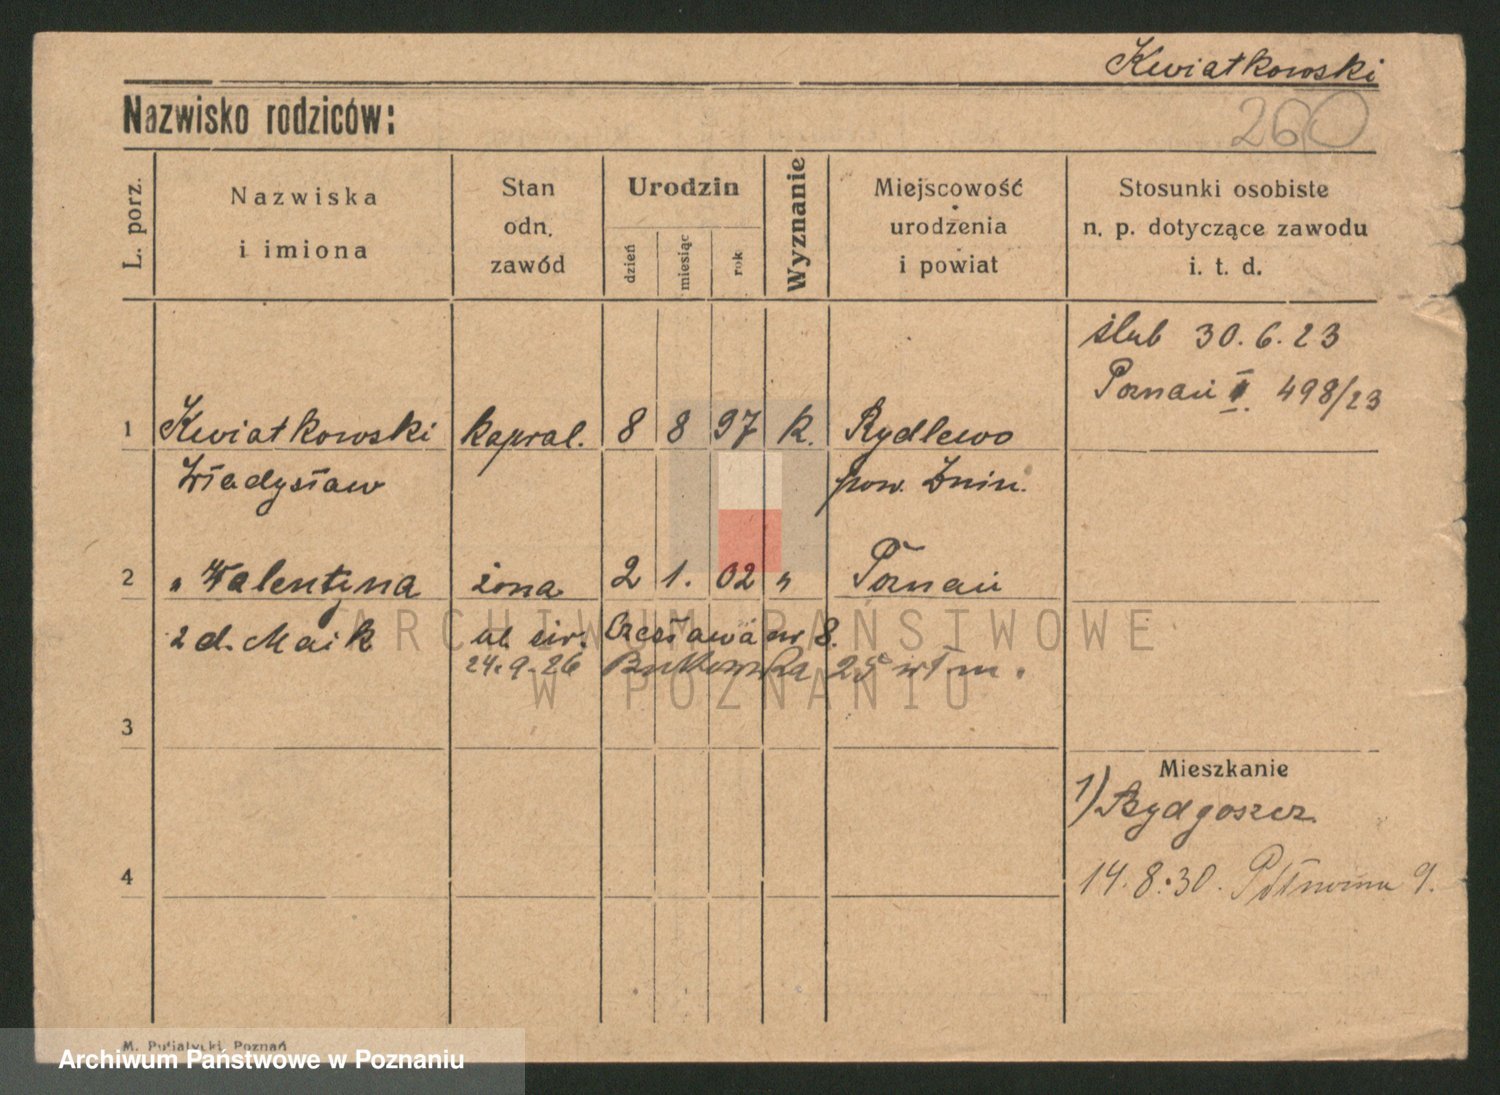 Kwiatkowski
Nazwisko rodziców:
260
L. porz.
Nazwiska
i imiona
Stan
odn.
zawód
Urodzin
dzień
miesiąc
rok
Wyznanie
Miejscowość
urodzenia
i powiat
Stosunki osobiste
n. p. dotyczące zawodu
i. t. d.
ślub 30. 6. 23
Poznań II. 498/23
1 Kwiatkowski kapral. 8 8 97 k. Rydlewo
Władysław pow. Żnin.
2 " Walentyna żona 2 1. 02 " Poznań
z d. Maik ul. św. Czesława nr 8.
24. 9. 26 Bukowska 25
ARCHIWUM PAŃSTWOWE
W POZNANIU
3
Mieszkanie
1) Bydgoszcz
4
14. 8. 30. 9.
M. Putiatycki, Poznań
Archiwum Państwowe w Poznaniu